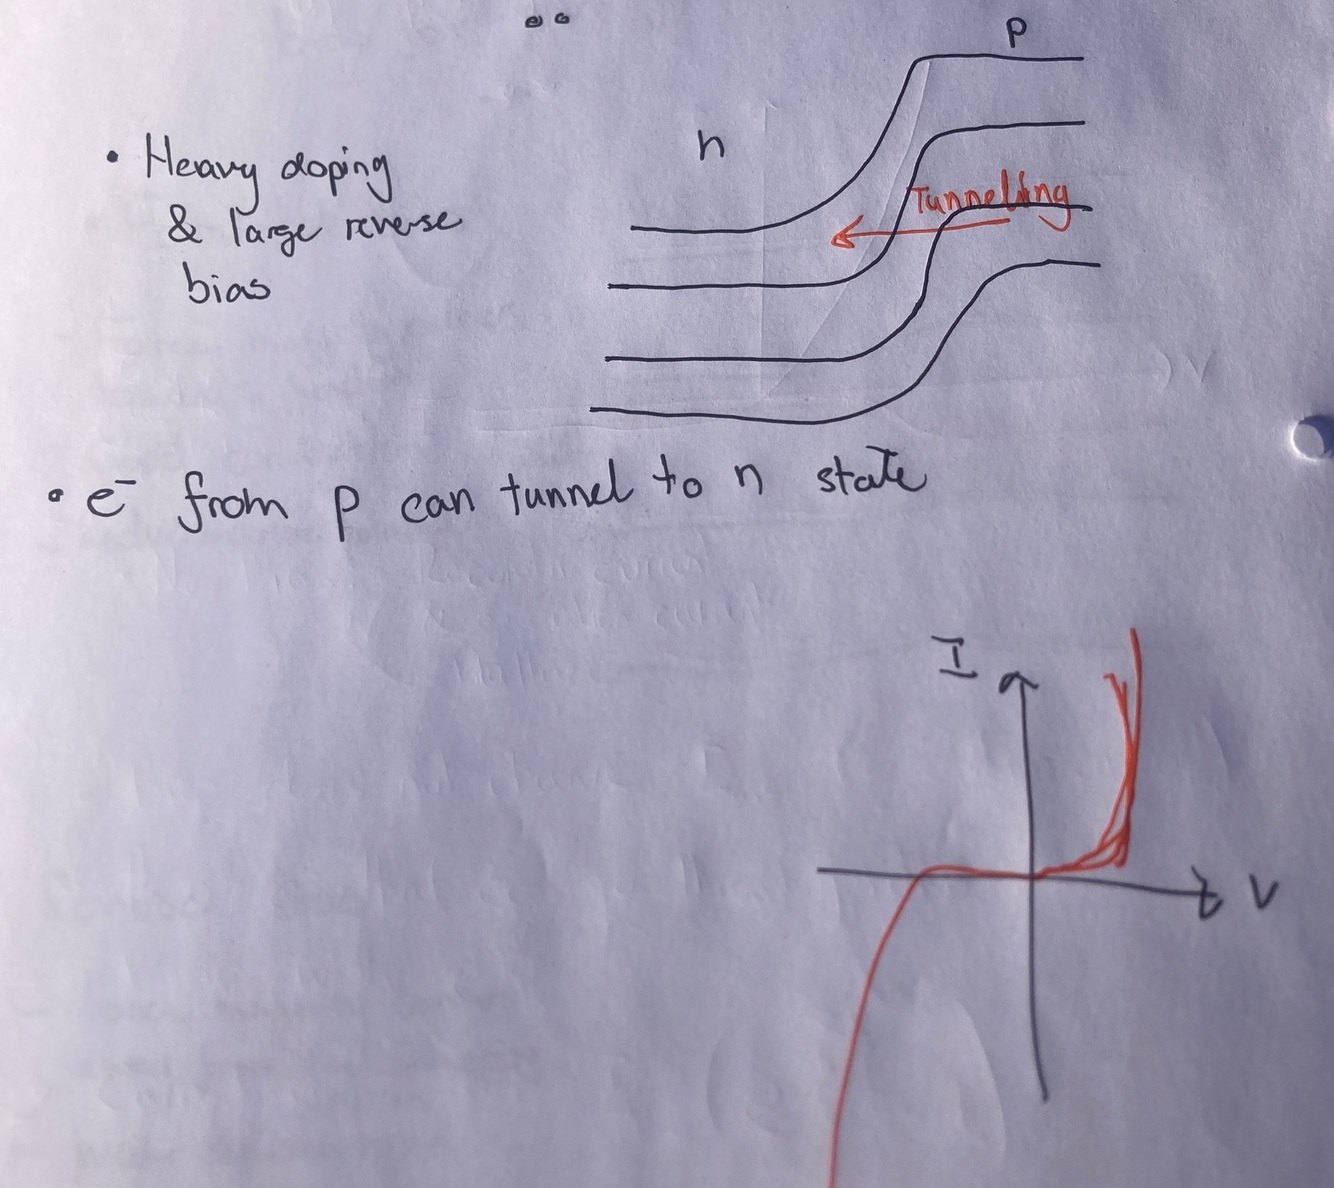 p
n
• Heavy doping
& large reverse
bias
Tunnelling
• e⁻ from p can tunnel to n state
I
V